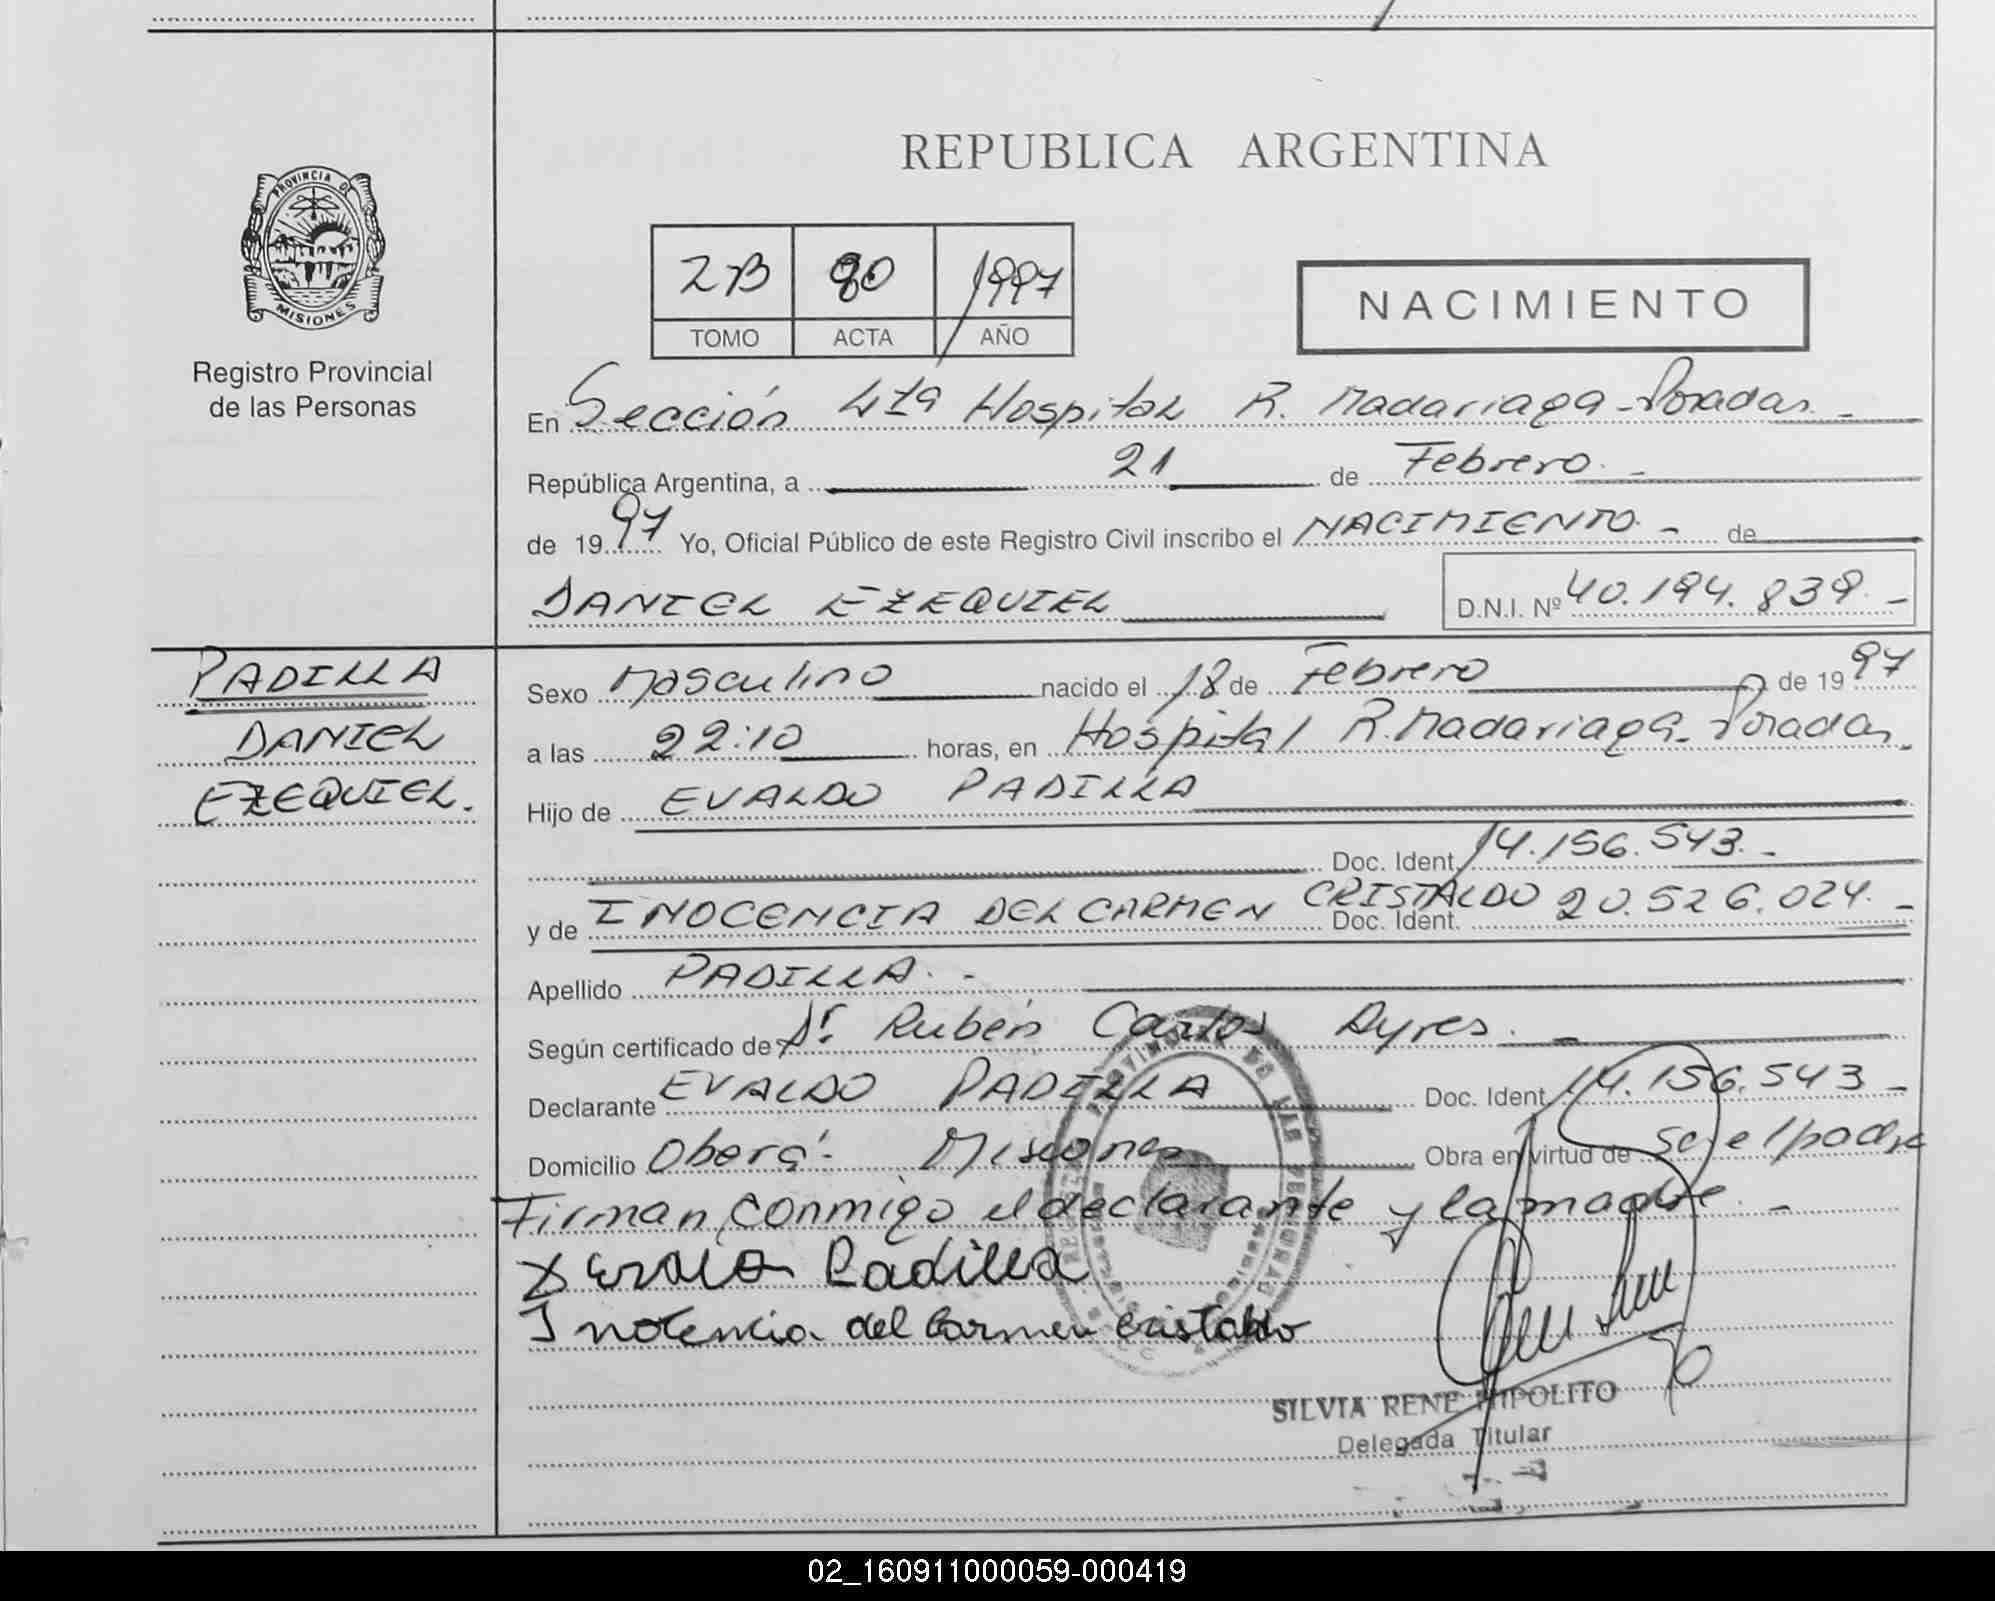 REPUBLICA ARGENTINA
PROVINCIA DE
MISIONES
Registro Provincial
de las Personas
2B 90 1997
TOMO ACTA AÑO
NACIMIENTO
En Sección 4ta Hospital R. Madariaga - Posadas. -
República Argentina, a 21 de Febrero. -
de 1997 Yo, Oficial Público de este Registro Civil inscribo el NACIMIENTO. - de
DANIEL EZEQUIEL D.N.I. Nº 40.194.839. -
PADILLA
DANIEL
EZEQUIEL.
Sexo Masculino nacido el 18 de Febrero de 1997
a las 22:10 horas, en Hospital R. Madariaga - Posadas.
Hijo de EVALDO PADILLA
Doc. Ident. 14.156.543. -
y de INOCENCIA DEL CARMEN CRISTALDO Doc. Ident. 20.526.024. -
Apellido PADILLA. -
Según certificado de Dr. Rubén Carlos Ayres. -
Declarante EVALDO PADILLA Doc. Ident. 14.156.543 -
Domicilio Oberá - Misiones Obra en virtud de ser el padre
Firman conmigo el declarante y la madre. -
x Evaldo Padilla
Inocencia del Carmen Cristaldo
SILVIA RENE HIPOLITO
Delegada Titular
02_160911000059-000419